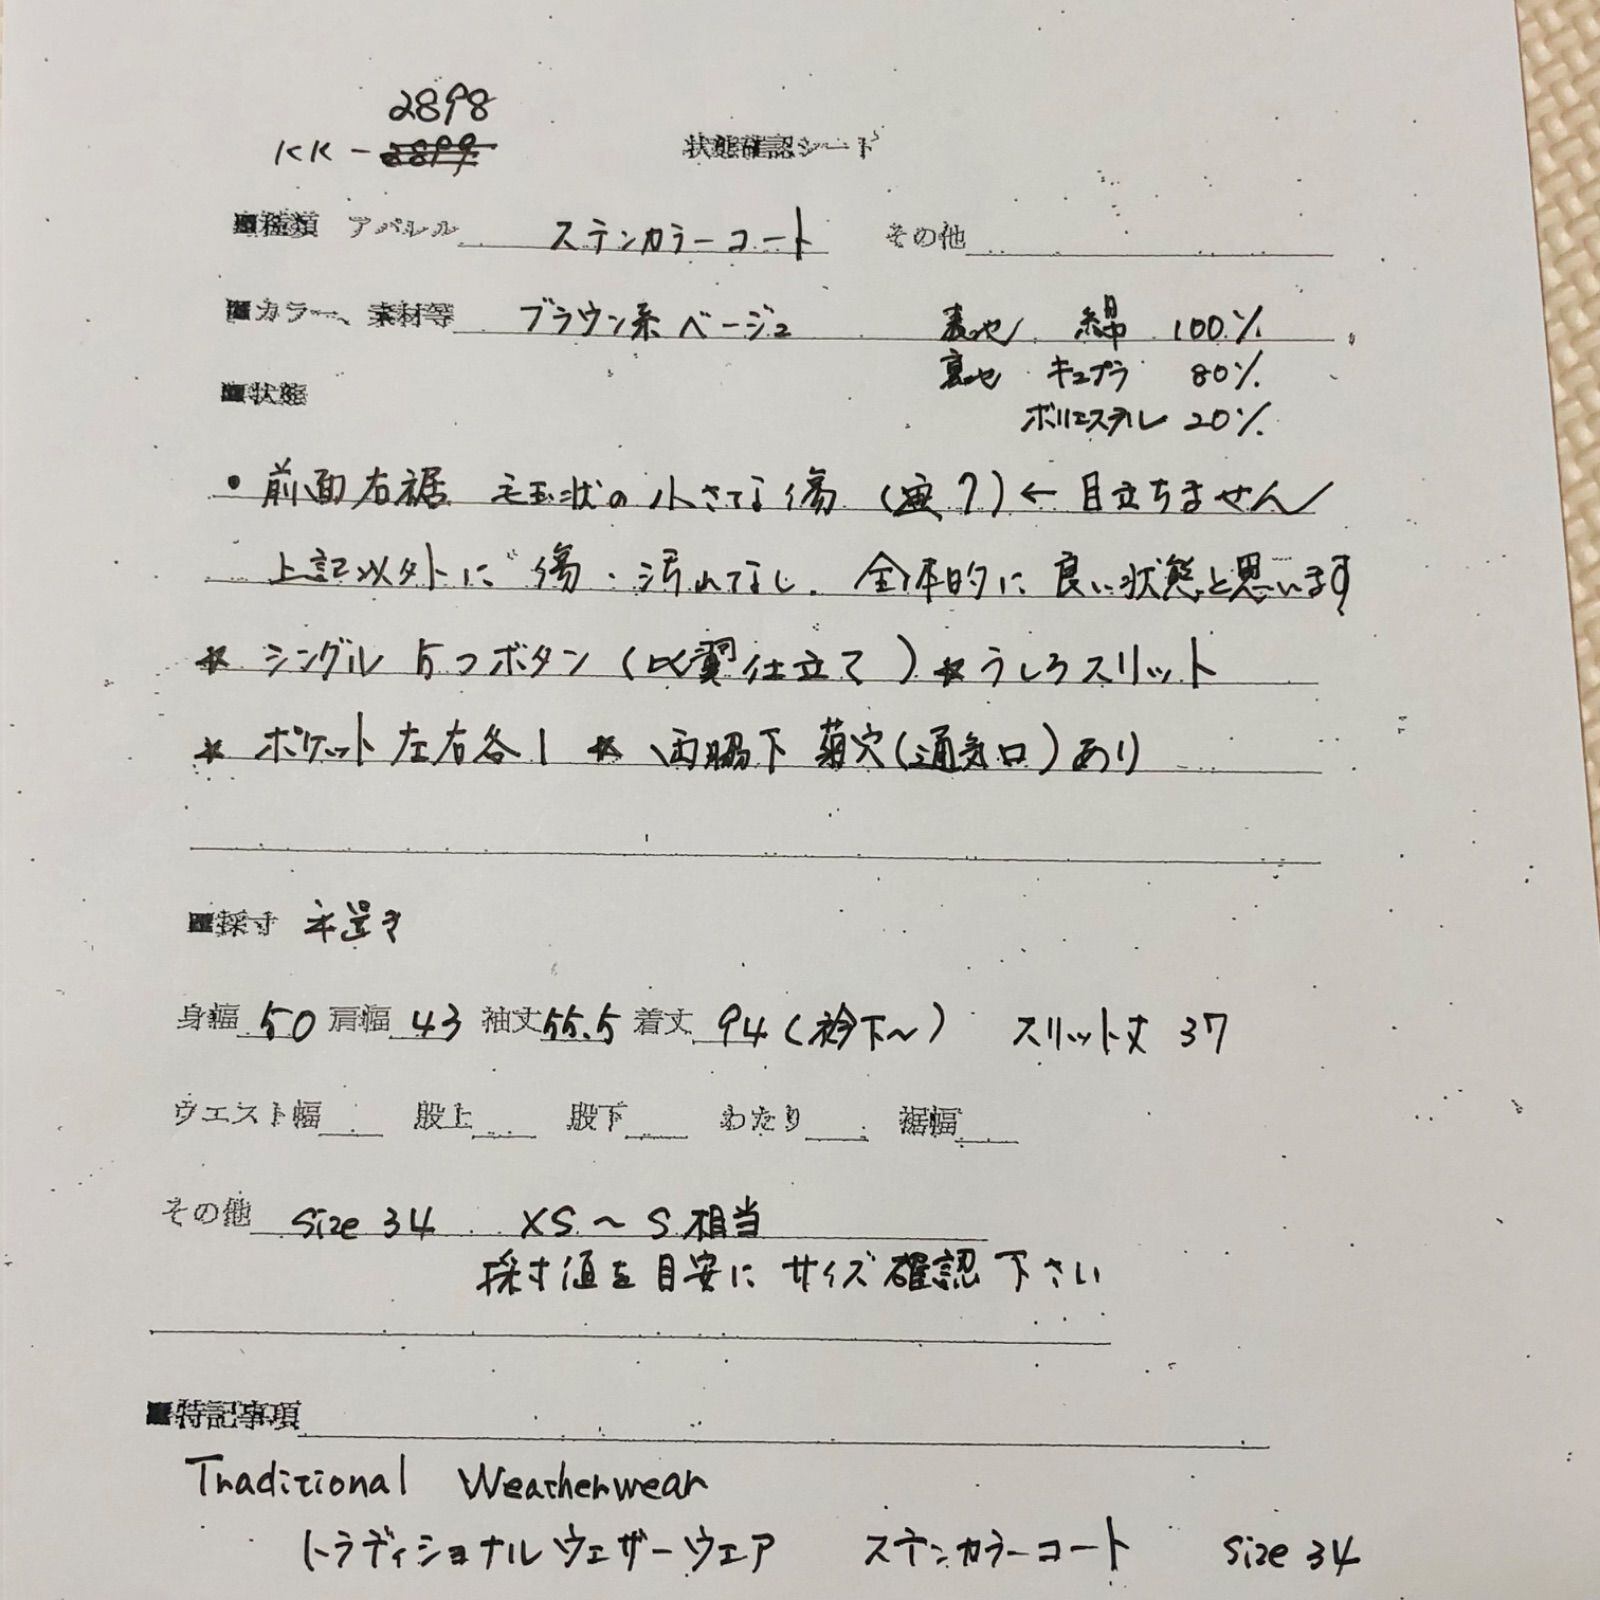 2898
KK-
状態確認シート
■種類 アパレル ステンカラーコート その他
■カラー、素材等 ブラウン系ベージュ 表地 綿 100%
裏地 キュプラ 80%
■状態
ポリエステル 20%
・前面右裾 毛玉状の小さな傷 ( ?) ← 目立ちません
上記以外に 傷・汚れなし. 全体的に 良い状態と思います
* シングル 5つボタン (比翼仕立て) * うしろスリット
* ポケット左右各1 * 両脇下 菊穴(通気口)あり
■採寸 平置き
身幅 50 肩幅 43 袖丈 55.5 着丈 94 (衿下~) スリット丈 37
ウエスト幅 股上 股下 わたり 裾幅
その他 size 34 XS~S 相当
採寸値を目安に サイズ確認下さい
■特記事項
Traditional Weatherwear
トラディショナルウェザーウェア ステンカラーコート size 34